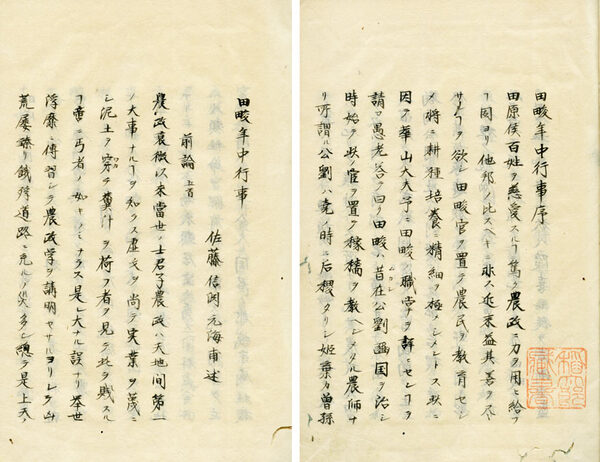 田畯年中行事序
田原侯百姓ヲ慈愛スルヿ篤ク農政ニ力ヲ用ヒ給フ
ヿ固ヨリ他邦ノ比スヘキニ非ス近来益其善ヲ尽
サンヿヲ欲シ田畯官ヲ置テ農民ヲ教育セシ
メ将ニ耕種培養ニ精細ヲ極メシメントス
因テ華山大夫予ニ田畯ノ職掌ヲ詳ニセンヿヲ
請フ愚老答テ曰ク田畯ハ昔在公劉豳国ヲ治シ
時始テ此ノ官ヲ置テ稼穡ヲ教ヘシメタル農師ナ
リ所謂ル公劉ハ堯ノ時ニ后稷タリシ姫棄カ曽孫
稲田
蔵書
田畯年中行事
佐藤信淵元海甫述
前論 五首
農政衰微以来當世ノ士君子農政ハ天地間第一
ノ大事ナルヿヲ知ラス虚文ヲ尚テ実業ヲ蔑ニ
シ泥土ヲ穿チ糞汁ヲ荷フ者ヲ見テ此ヲ賤スル
ヿ啻ニ丐者ノ如キノミナラス是レ大ナル誤ナリ挙世
浮靡ニ傳習シテ農政学ヲ講明セサルヨリシテ凶
荒屡臻リ餓殍道路ニ充ルノ災多シ總テ是上天ノ